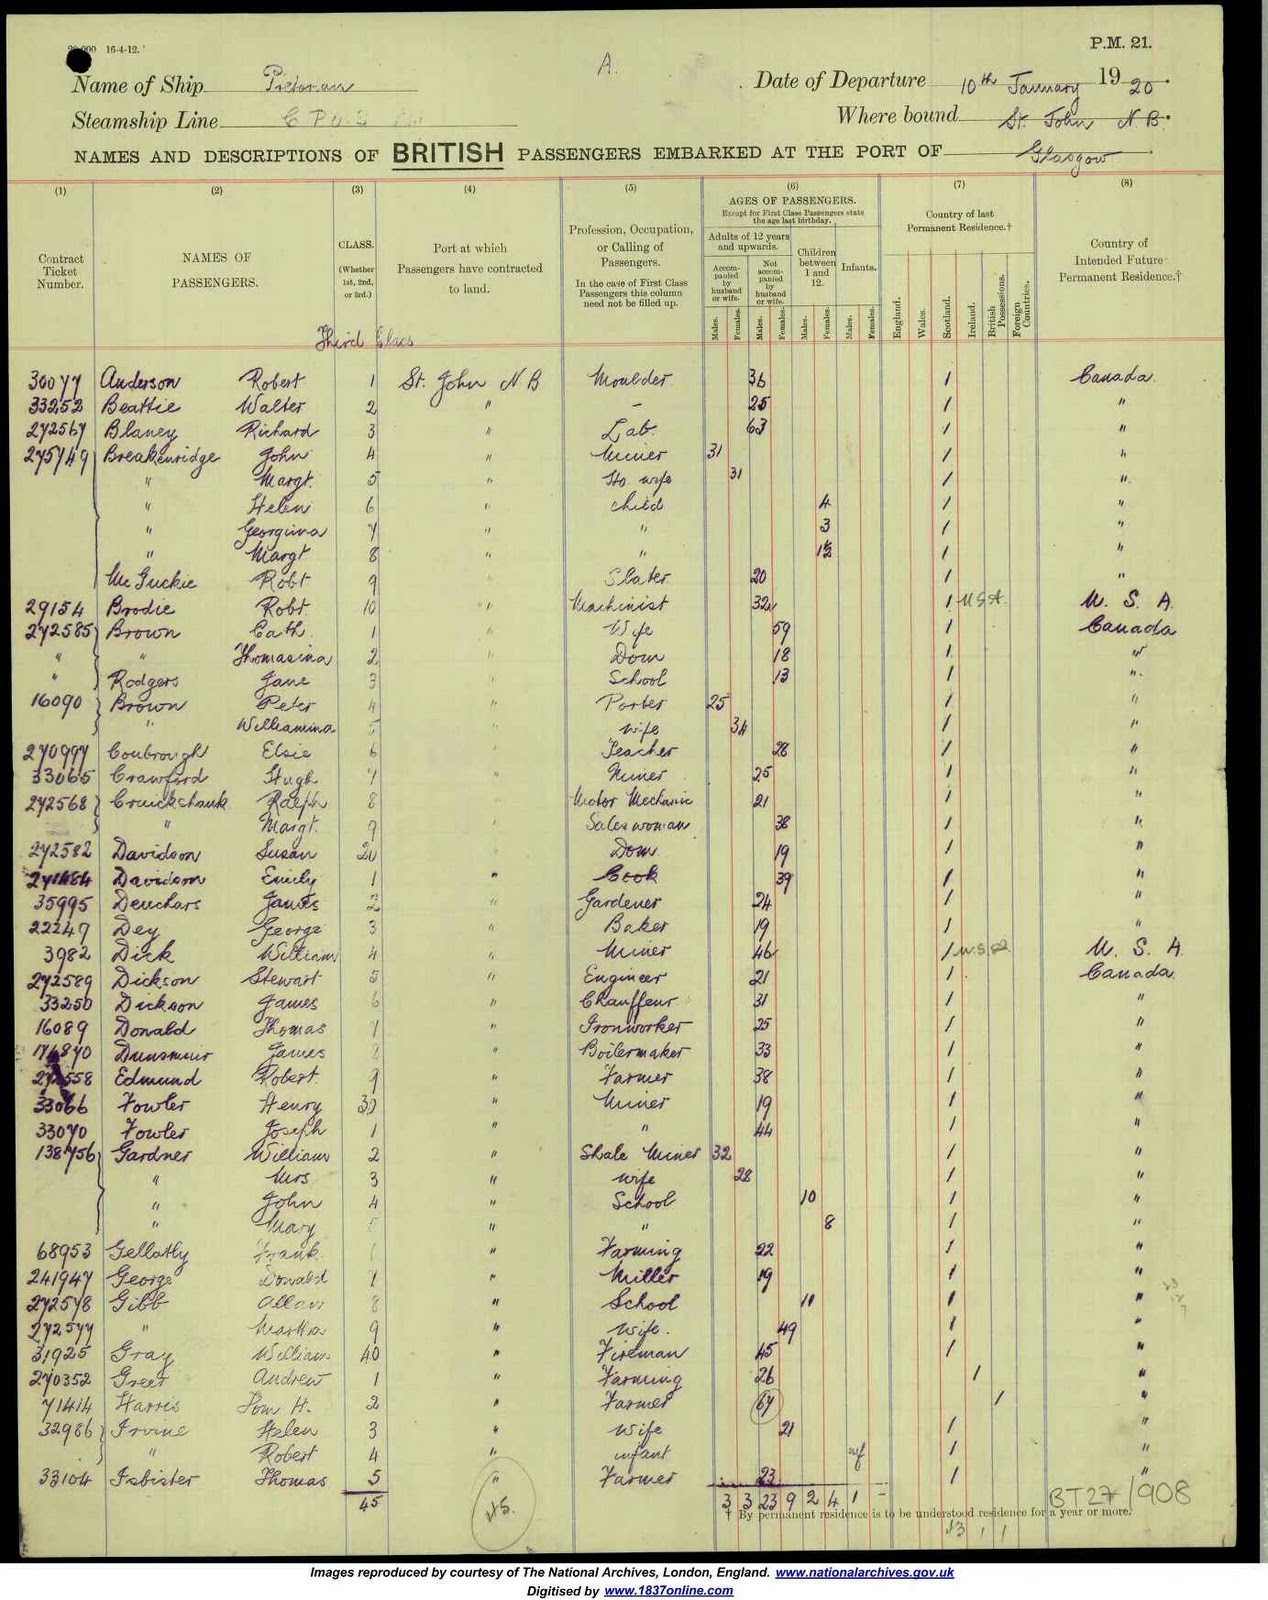 20,000 16-4-12.
A.
P.M. 21.
Name of Ship Pretorian
Date of Departure 10th January 1920.
Steamship Line C P O S
Where bound St. John N B.
NAMES AND DESCRIPTIONS OF BRITISH PASSENGERS EMBARKED AT THE PORT OF Glasgow
(1) (2) (3) (4) (5) (6) (7) (8)
Contract Ticket Number.
NAMES OF PASSENGERS.
CLASS. (Whether 1st, 2nd, or 3rd.)
Port at which Passengers have contracted to land.
Profession, Occupation, or Calling of Passengers.
In the case of First Class Passengers this column need not be filled up.
AGES OF PASSENGERS.
Except for First Class Passengers state the age last birthday.
Adults of 12 years and upwards.
Children between 1 and 12.
Infants.
Accompanied by husband or wife.
Not accompanied by husband or wife.
Males. Females. Males. Females. Males. Females. Males. Females.
Country of last Permanent Residence.†
England. Wales. Scotland. Ireland. British Possessions. Foreign Countries.
Country of Intended Future Permanent Residence.†
Third Class
30077 Anderson Robert 1 St. John N B Moulder 36 / Canada
33252 Beattie Walter 2 " - 25 / "
272567 Blaney Richard 3 " Lab. 63 / "
275749 Breakenridge John 4 " Miner 31 / "
" Margt. 5 " Ho. wife 31 / "
" Helen 6 " child 4 / "
" Georgina 7 " " 3 / "
" Margt 8 " " 1½ / "
McGuckie Robt 9 Slater 20 / "
29154 Brodie Robt 10 " Machinist 32 / U.S.A. U. S. A.
272585 Brown Cath. 1 " Wife 59 / Canada
" " Thomasina 2 " Dom 18 / "
" Rodgers Jane 3 " School 13 / "
16090 Brown Peter 4 " Porter 25 / "
" Williamina 5 " wife 34 / "
270997 Coubrough Elsie 6 " Teacher 28 / "
33065 Crawford Hugh 7 " Miner 25 / "
272568 Cruickshank Ralph 8 " Motor Mechanic 21 / "
" Margt. 9 " Saleswoman 38 / "
272582 Davidson Susan 20 " Dom 19 / "
271484 Davidson Emily 1 " Cook 39 / "
35995 Deuchars James 2 " Gardener 24 / "
22249 Dey George 3 " Baker 19 / "
3982 Dick William 4 " Miner 46 / U.S.A. U. S. A.
272589 Dickson Stewart 5 " Engineer 21 / Canada
33250 Dickson James 6 " Chauffeur 31 / "
16089 Donald Thomas 7 " Ironworker 25 / "
Dunsmuir James 8 " Boilermaker 33 / "
272558 Edmund Robert 9 " Farmer 38 / "
33066 Fowler Henry 30 " Miner 19 / "
33070 Fowler Joseph 1 " " 44 / "
138756 Gardner William 2 " Shale Miner 32 / "
" Mrs 3 " wife 28 / "
" John 4 " School 10 / "
" Mary 5 " " 8 / "
68953 Gellatly Frank 6 " Farming 22 / "
241947 George Donald 7 " Miller 19 / "
272578 Gibb Allan 8 " School 10 / "
272577 " Martha 9 " wife. 49 / "
31925 Gray William 40 " Fireman 45 / "
270352 Greer Andrew 1 " Farming 26 / "
71414 Harris Tom H. 2 " Farmer 67 / "
32986 Irvine Helen 3 " wife 21 / "
" Robert 4 " infant inf / "
33104 Isbister Thomas 5 " Farmer 23 / "
45 45. 3 3 23 9 2 4 1 -
BT27/908
† By permanent residence is to be understood residence for a year or more.
43 1 1
Images reproduced by courtesy of The National Archives, London, England. www.nationalarchives.gov.uk
Digitised by www.1837online.com